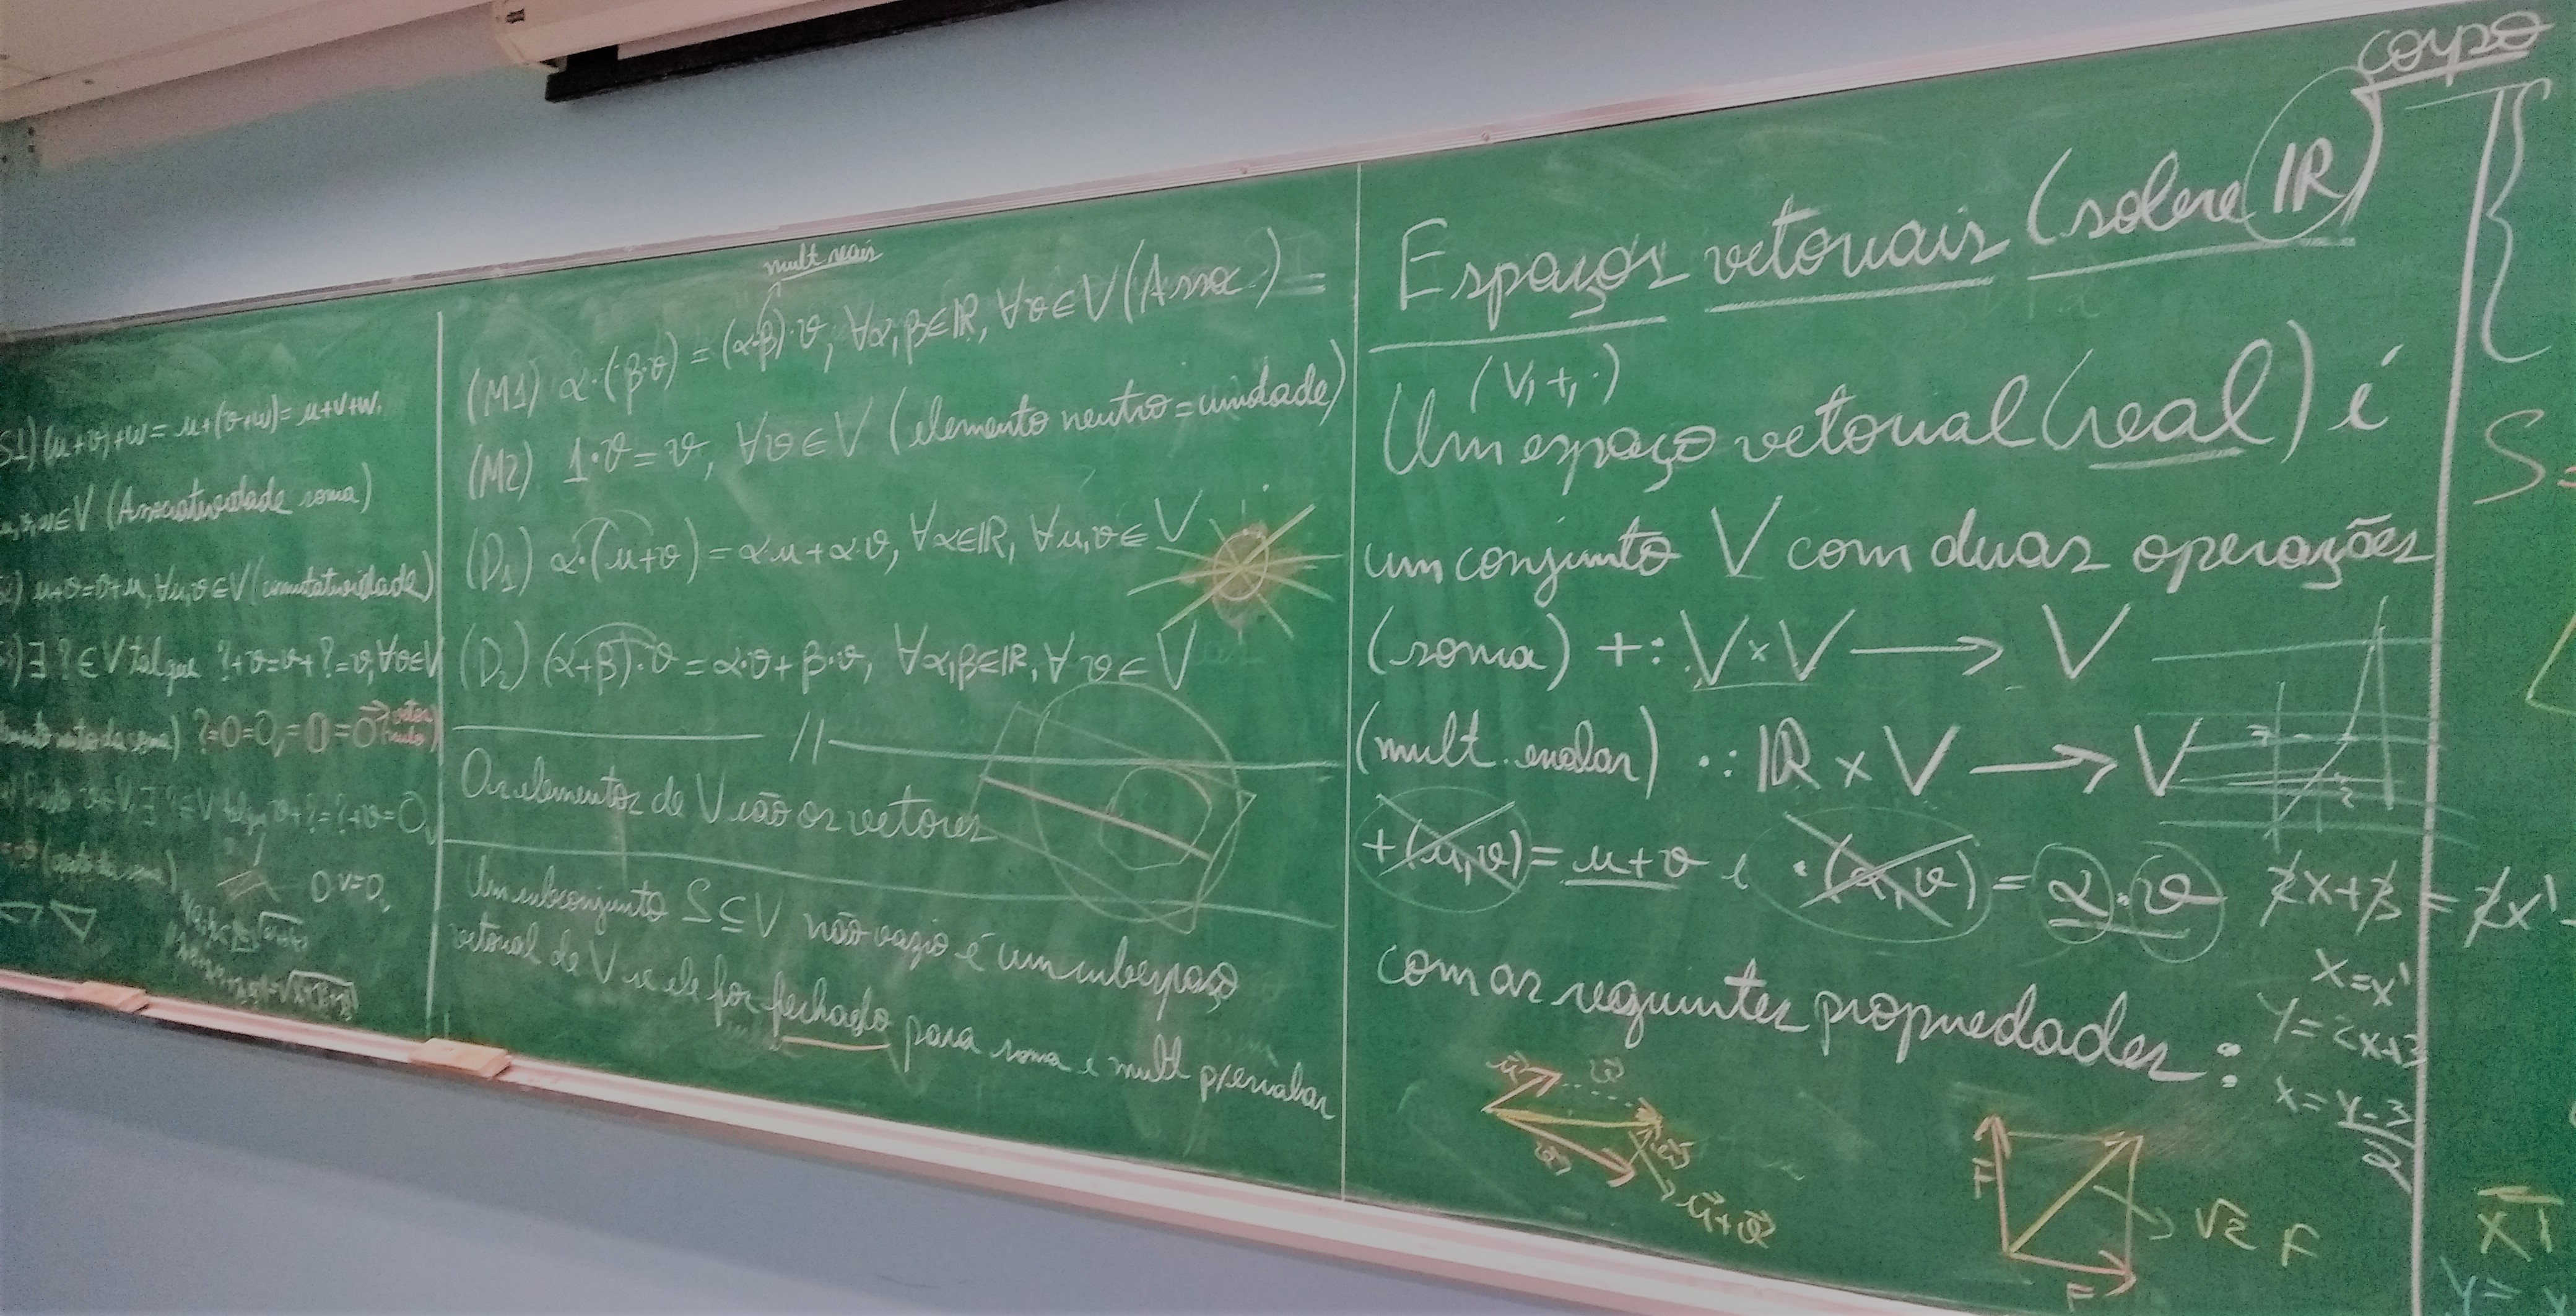 S1) (u+v)+w = u+(v+w) = u+v+w,
∈V (Associatividade soma)
u+v=v+u, ∀u,v∈V (comutatividade)
) ∃ ? ∈ V tal que ?+v=v+?=v, ∀v∈V
?=0=0ᵥ=𝟘=0⃗ (vetor nulo)
0·v=0ᵥ
mult reais
(M1) α·(β·v) = (α·β)·v, ∀α,β∈ℝ, ∀v∈V (Assoc)
(M2) 1·v = v, ∀v∈V (elemento neutro = unidade)
(D1) α·(u+v) = α·u+α·v, ∀α∈ℝ, ∀u,v∈V
(D2) (α+β)·v = α·v+β·v, ∀α,β∈ℝ, ∀v∈V
//
Os elementos de V são os vetores
Um subconjunto S⊆V não vazio é um subespaço
vetorial de V se ele for fechado para soma e mult p/escalar
corpo
Espaços vetoriais (sobre ℝ)
(V,+,·)
Um espaço vetorial (real) é
um conjunto V com duas operações
(soma) +: V×V → V
(mult. escalar) ·: ℝ×V → V
+(u,v) = u+v e ·(α,v) = α·v
com as seguintes propriedades:
2x+3 = 2x'
x=x'
y=2x+3
x=y-3
2
u⃗+v⃗
F
F
√2 F
S=